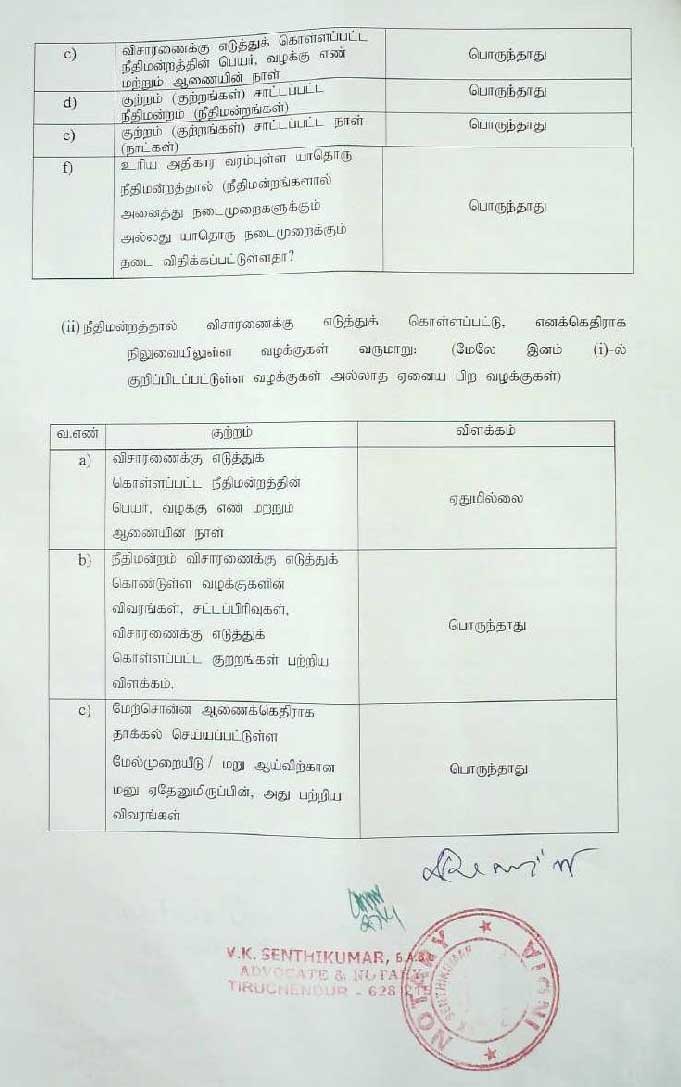 c) விசாரணைக்கு எடுத்துக் கொள்ளப்பட்ட
நீதிமன்றத்தின் பெயர், வழக்கு எண்
மற்றும் ஆணையின் நாள்
பொருந்தாது
d) குற்றம் (குற்றங்கள்) சாட்டப்பட்ட
நீதிமன்றம் (நீதிமன்றங்கள்)
பொருந்தாது
e) குற்றம் (குற்றங்கள்) சாட்டப்பட்ட நாள்
(நாட்கள்)
பொருந்தாது
f) உரிய அதிகார வரம்புள்ள யாதொரு
நீதிமன்றத்தால் (நீதிமன்றங்களால்
அனைத்து நடைமுறைகளுக்கும்
அல்லது யாதொரு நடைமுறைக்கும்
தடை விதிக்கப்பட்டுள்ளதா?
பொருந்தாது
(ii) நீதிமன்றத்தால் விசாரணைக்கு எடுத்துக் கொள்ளப்பட்டு, எனக்கெதிராக
நிலுவையிலுள்ள வழக்குகள் வருமாறு: (மேலே இனம் (i)-ல்
குறிப்பிடப்பட்டுள்ள வழக்குகள் அல்லாத ஏனைய பிற வழக்குகள்)
வ.எண் குற்றம் விளக்கம்
a) விசாரணைக்கு எடுத்துக்
கொள்ளப்பட்ட நீதிமன்றத்தின்
பெயர், வழக்கு எண் மற்றும்
ஆணையின் நாள்
ஏதுமில்லை
b) நீதிமன்றம் விசாரணைக்கு எடுத்துக்
கொண்டுள்ள வழக்குகளின்
விவரங்கள், சட்டப்பிரிவுகள்,
விசாரணைக்கு எடுத்துக்
கொள்ளப்பட்ட குற்றங்கள் பற்றிய
விளக்கம்.
பொருந்தாது
c) மேற்சொன்ன ஆணைக்கெதிராக
தாக்கல் செய்யப்பட்டுள்ள
மேல்முறையீடு / மறு ஆய்விற்கான
மனு ஏதேனுமிருப்பின், அது பற்றிய
விவரங்கள்
பொருந்தாது
V.K. SENTHIKUMAR,
ADVOCATE & NOTARY
TIRUCHENDUR - 628 215
NOTARY
INDIA
SENTHIKUMAR